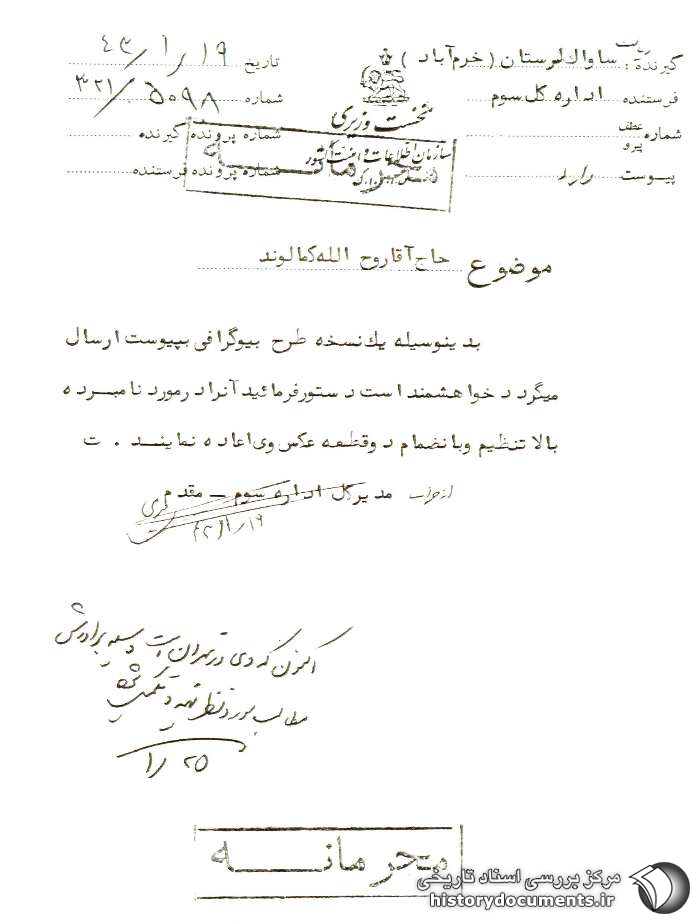 گیرنده : ریاست ساواک لرستان ( خرم‌آباد )
فرستنده اداره کل سوم
شماره عطف پیرو
پیوست دارد
نخست وزیری
سازمان اطلاعات و امنیت کشور
محرمانه
تاریخ ۴۳/۱/۱۹
شماره ۳۲۱/۵۰۹۸
شماره پرونده گیرنده
شماره پرونده فرستنده
موضوع حاج آقا روح الله کمالوند
بدینوسیله یک نسخه طرح بیوگرافی بپیوست ارسال
میگردد خواهشمند است دستور فرمائید آنرا در مورد نامبرده
بالا تنظیم و بانضمام دو قطعه عکس وی اعاده نمایند . ت
مدیر کل اداره سوم ــ مقدم
از طرف
۴۳/۱/۱۹
اکنون که وی در تهران است وسیله برادرش
مطالب مورد نظر تهیه و تکمیل شود
۱/۲۵
محرمانه
مرکز بررسی اسناد تاریخی
historydocuments.ir